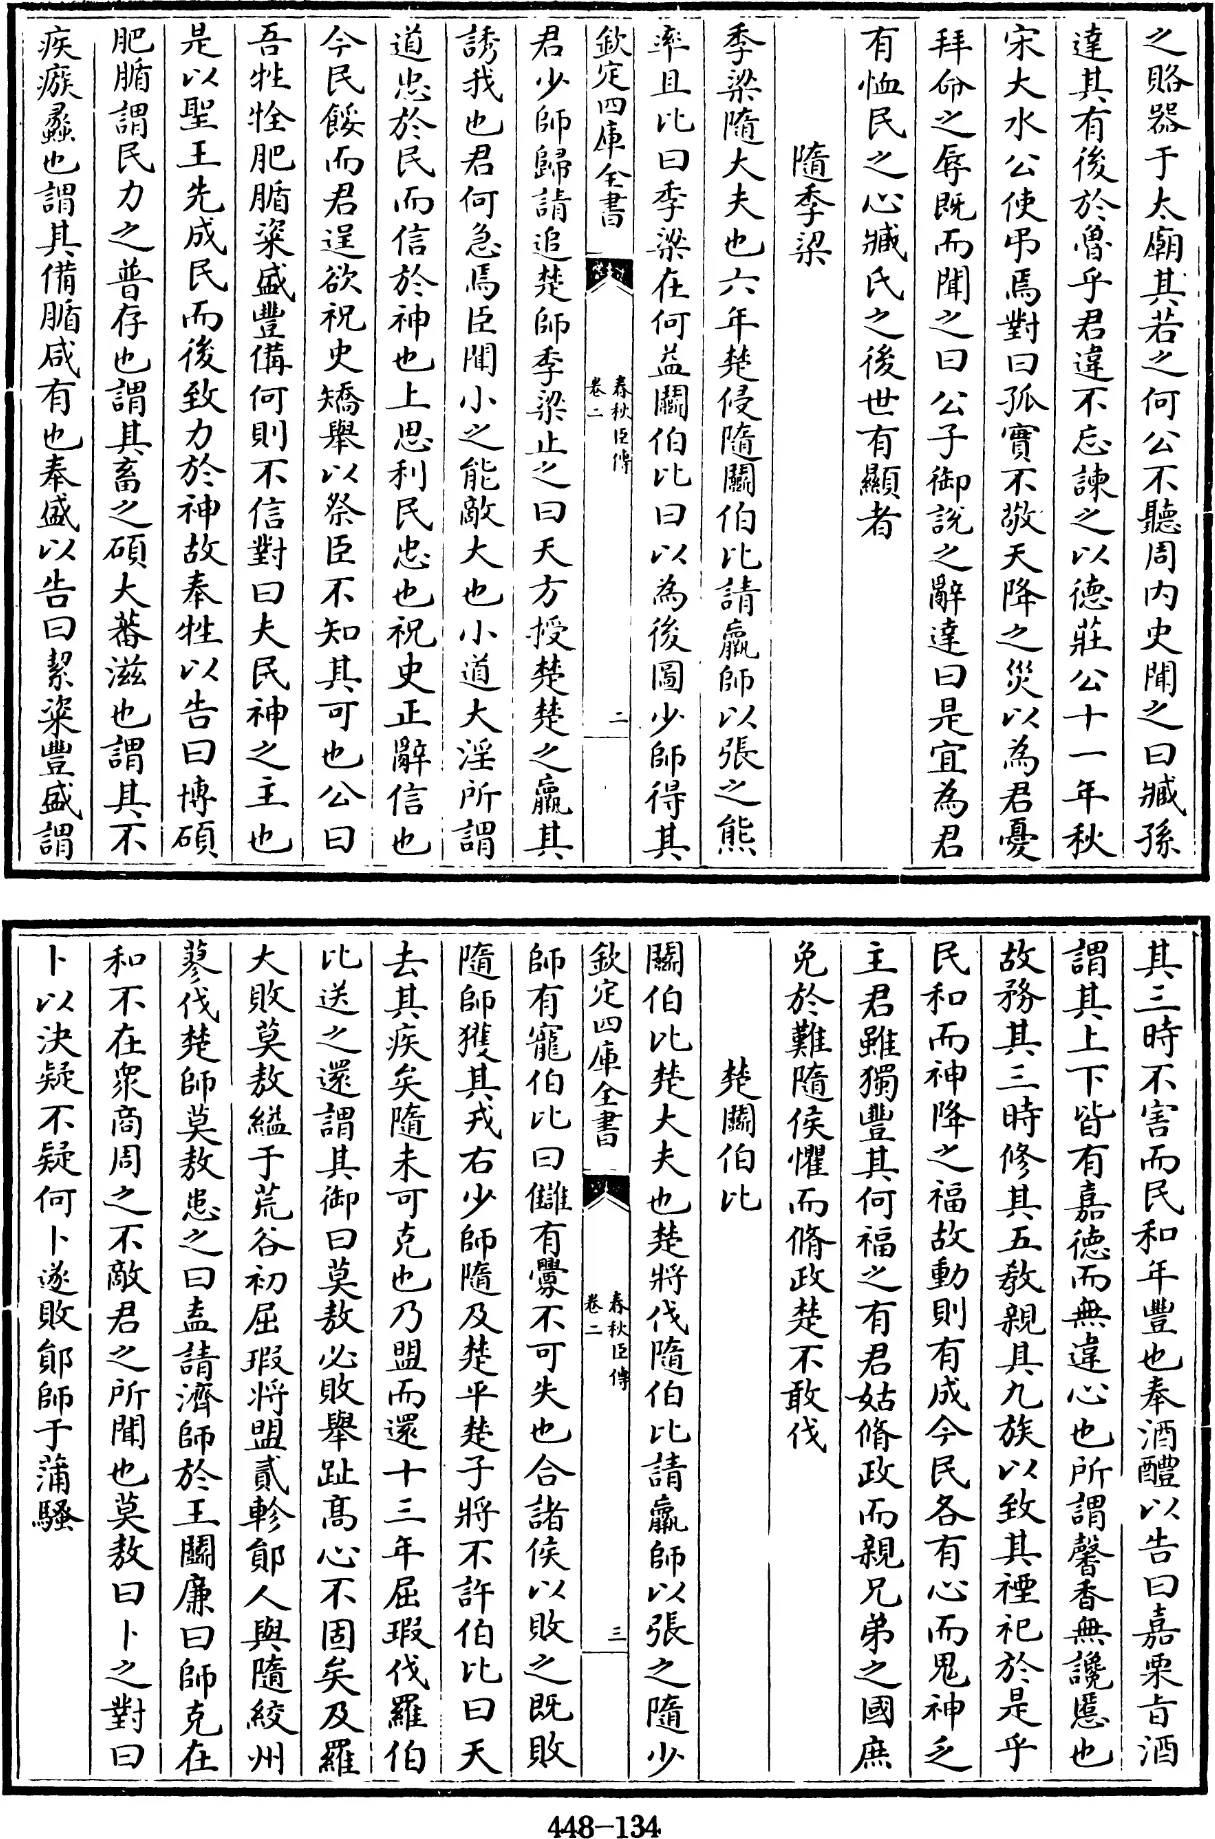 之賂器于太廟其若之何公不聽周内史聞之曰臧孫
達其有後於魯乎君違不忘諫之以德莊公十一年秋
宋大水公使弔焉對曰孤實不敬天降之災以為君憂
拜命之辱既而聞之曰公子御說之辭達曰是宜為君
有恤民之心臧氏之後世有顯者
隨季梁
季梁隨大夫也六年楚侵隨鬬伯比請羸師以張之熊
率且比曰季梁在何益鬬伯比曰以為後圖少師得其
欽定四庫全書
春秋臣傳
卷二
二
君少師歸請追楚師季梁止之曰天方授楚楚之羸其
誘我也君何急焉臣聞小之能敵大也小道大淫所謂
道忠於民而信於神也上思利民忠也祝史正辭信也
今民餒而君逞欲祝史矯舉以祭臣不知其可也公曰
吾牲牷肥腯粢盛豐備何則不信對曰夫民神之主也
是以聖王先成民而後致力於神故奉牲以告曰博碩
肥腯謂民力之普存也謂其畜之碩大蕃滋也謂其不
疾瘯蠡也謂其備腯咸有也奉盛以告曰絜粢豐盛謂
其三時不害而民和年豐也奉酒醴以告曰嘉栗旨酒
謂其上下皆有嘉德而無違心也所謂馨香無讒慝也
故務其三時修其五教親其九族以致其禋祀於是乎
民和而神降之福故動則有成今民各有心而鬼神乏
主君雖獨豐其何福之有君姑脩政而親兄弟之國庶
免於難隨侯懼而脩政楚不敢伐
楚鬬伯比
鬬伯比楚大夫也楚將伐隨伯比請羸師以張之隨少
欽定四庫全書
春秋臣傳
卷二
三
師有寵伯比曰讎有釁不可失也合諸侯以敗之既敗
隨師獲其戎右少師隨及楚平楚子將不許伯比曰天
去其疾矣隨未可克也乃盟而還十三年屈瑕伐羅伯
比送之還謂其御曰莫敖必敗舉趾髙心不固矣及羅
大敗莫敖縊于荒谷初屈瑕將盟貳軫鄖人與隨絞州
蓼伐楚師莫敖患之曰盍請濟師於王鬬廉曰師克在
和不在衆商周之不敵君之所聞也莫敖曰卜之對曰
卜以決疑不疑何卜遂敗鄖師于蒲騷
448-134